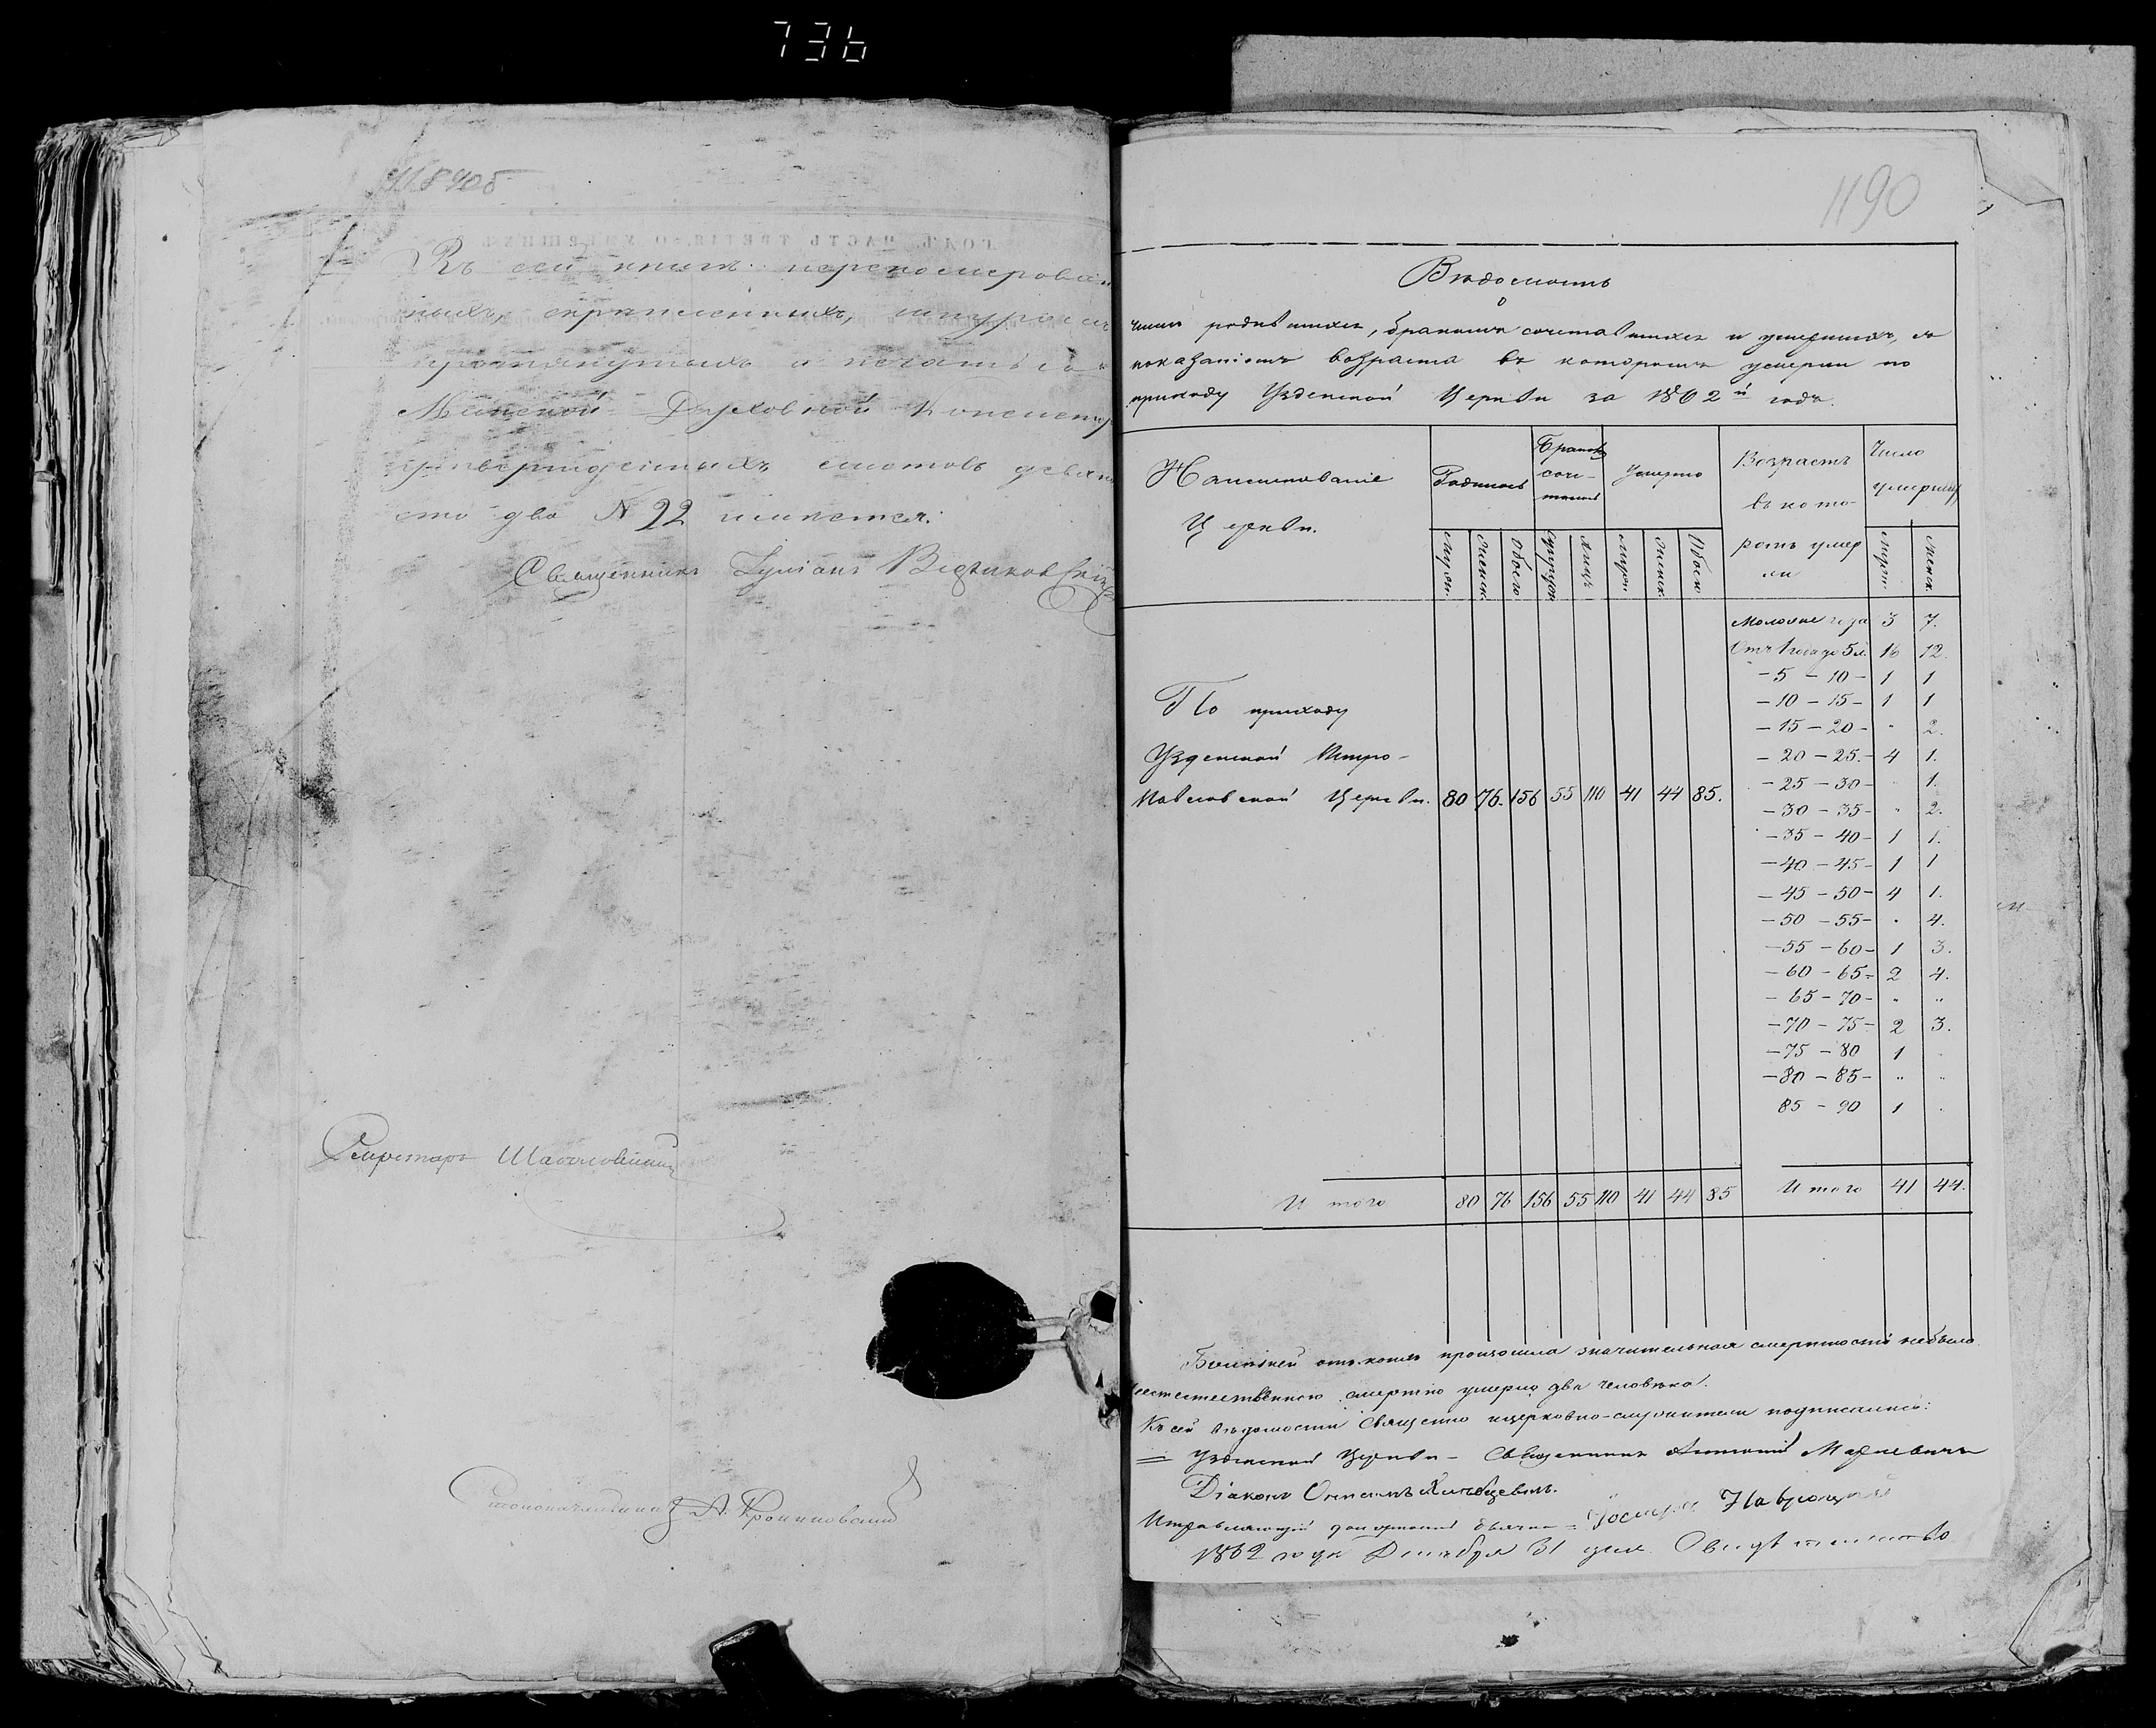 736
1190
Въ сей книгѣ перенумерован-
ныхъ, скрѣпленныхъ, шнуромъ
протянутыхъ и печатью
Минской Духовной Консисто
утвержденныхъ листовъ девяно
сто два № 92 имѣется.
Священникъ
Секретарь
Столоначальникъ А.
Вѣдомость
о
числѣ родившихся, бракомъ сочетавшихся и умершихъ, съ
показаніемъ возраста въ которомъ умерли по
приходу Узденской Церкви за 1862й годъ.
Наименованіе Церкви.
Родилось
Браковъ соче-
Умерло
Возрастъ въ кото-ромъ умер ли
Число умершихъ
Мужск. Женск. Обоего Супруж. Лицъ Мужс. Женск. Обоего Мужск. Женск.
По приходу
Узденской Петро-
Павловской Церкви. 80 76. 156 55 110 41 44 85.
Моложе года 3 7.
Отъ 1 года до 5 л. 16 12.
- 5 - 10 - 1 1
- 10 - 15 - 1 1
- 15 - 20 - " 2.
- 20 - 25. - 4 1.
- 25 - 30 - " 1.
- 30 - 35 - " 2.
- 35 - 40 - 1 1.
- 40 - 45 - 1 1
- 45 - 50 - 4 1.
- 50 - 55 - " 4.
- 55 - 60 - 1 3.
- 60 - 65 - 2 4.
- 65 - 70 - " "
- 70 - 75 - 2 3.
- 75 - 80 1 "
- 80 - 85 - " "
85 - 90 1 "
Итого 80 76 156 55 110 41 44 85 Итого 41 44.
Болѣзней отъ коихъ произошла значительная смертность небыло
смертію умерло два человѣка.
Къ сей вѣдомости Священно ицерковно-служители подписались:
Узденской Церкви - Священникъ Антоній
Діаконъ
Исправляющій должность Дьячка =
1862 года Декабря 31 дня.